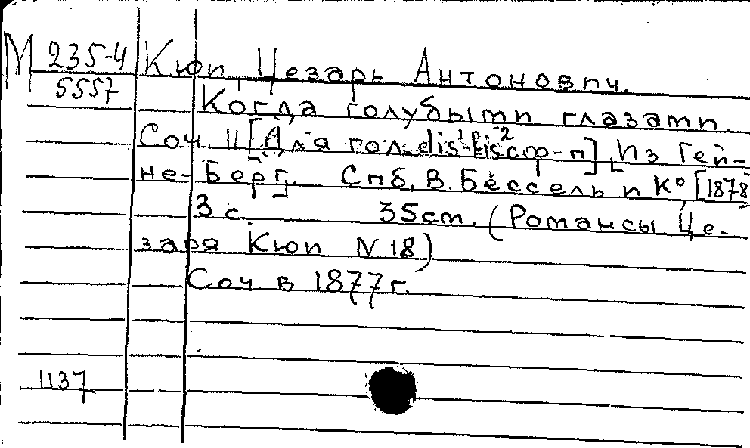 М 235-4 Кюи, Цезарь Антонович.
5557 Когда голубыми глазами.
Соч. 11 [Для гол. dis¹-fis² ср-п]. Из Гей-
не-Берг. Спб, В. Бессель и К° [1878]
3 с. 35 cm. (Романсы Це-
заря Кюи N 18)
Соч в 1877 г.
1137